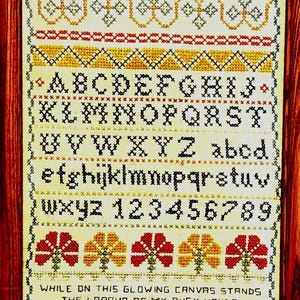 ABCDEFGHIJ
KLMNOPQRST
UVWXYZ abcd
efghijklmnopqrstuv
wxyz 123456789
WHILE ON THIS GLOWING CANVAS STANDS
THE LABOUR OF MY